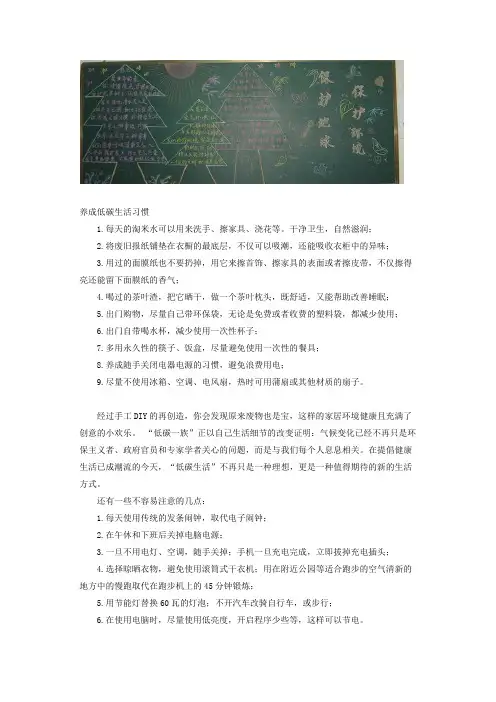 保护环境
保护地球
养成低碳生活习惯
1.每天的淘米水可以用来洗手、擦家具、浇花等。干净卫生，自然滋润；
2.将废旧报纸铺垫在衣橱的最底层，不仅可以吸潮，还能吸收衣柜中的异味；
3.用过的面膜纸也不要扔掉，用它来擦首饰、擦家具的表面或者擦皮带，不仅擦得
亮还能留下面膜纸的香气；
4.喝过的茶叶渣，把它晒干，做一个茶叶枕头，既舒适，又能帮助改善睡眠；
5.出门购物，尽量自己带环保袋，无论是免费或者收费的塑料袋，都减少使用；
6.出门自带喝水杯，减少使用一次性杯子；
7.多用永久性的筷子、饭盒，尽量避免使用一次性的餐具；
8.养成随手关闭电器电源的习惯，避免浪费用电；
9.尽量不使用冰箱、空调、电风扇，热时可用蒲扇或其他材质的扇子。
经过手工DIY的再创造，你会发现原来废物也是宝，这样的家居环境健康且充满了
创意的小欢乐。 “低碳一族”正以自己生活细节的改变证明：气候变化已经不再只是环
保主义者、政府官员和专家学者关心的问题，而是与我们每个人息息相关。在提倡健康
生活已成潮流的今天，“低碳生活”不再只是一种理想，更是一种值得期待的新的生活
方式。
还有一些不容易注意的几点：
1.每天使用传统的发条闹钟，取代电子闹钟；
2.在午休和下班后关掉电脑电源；
3.一旦不用电灯、空调，随手关掉；手机一旦充电完成，立即拔掉充电插头；
4.选择晾晒衣物，避免使用滚筒式干衣机；用在附近公园等适合跑步的空气清新的
地方中的慢跑取代在跑步机上的45分钟锻炼；
5.用节能灯替换60瓦的灯泡；不开汽车改骑自行车，或步行；
6.在使用电脑时，尽量使用低亮度，开启程序少些等，这样可以节电。